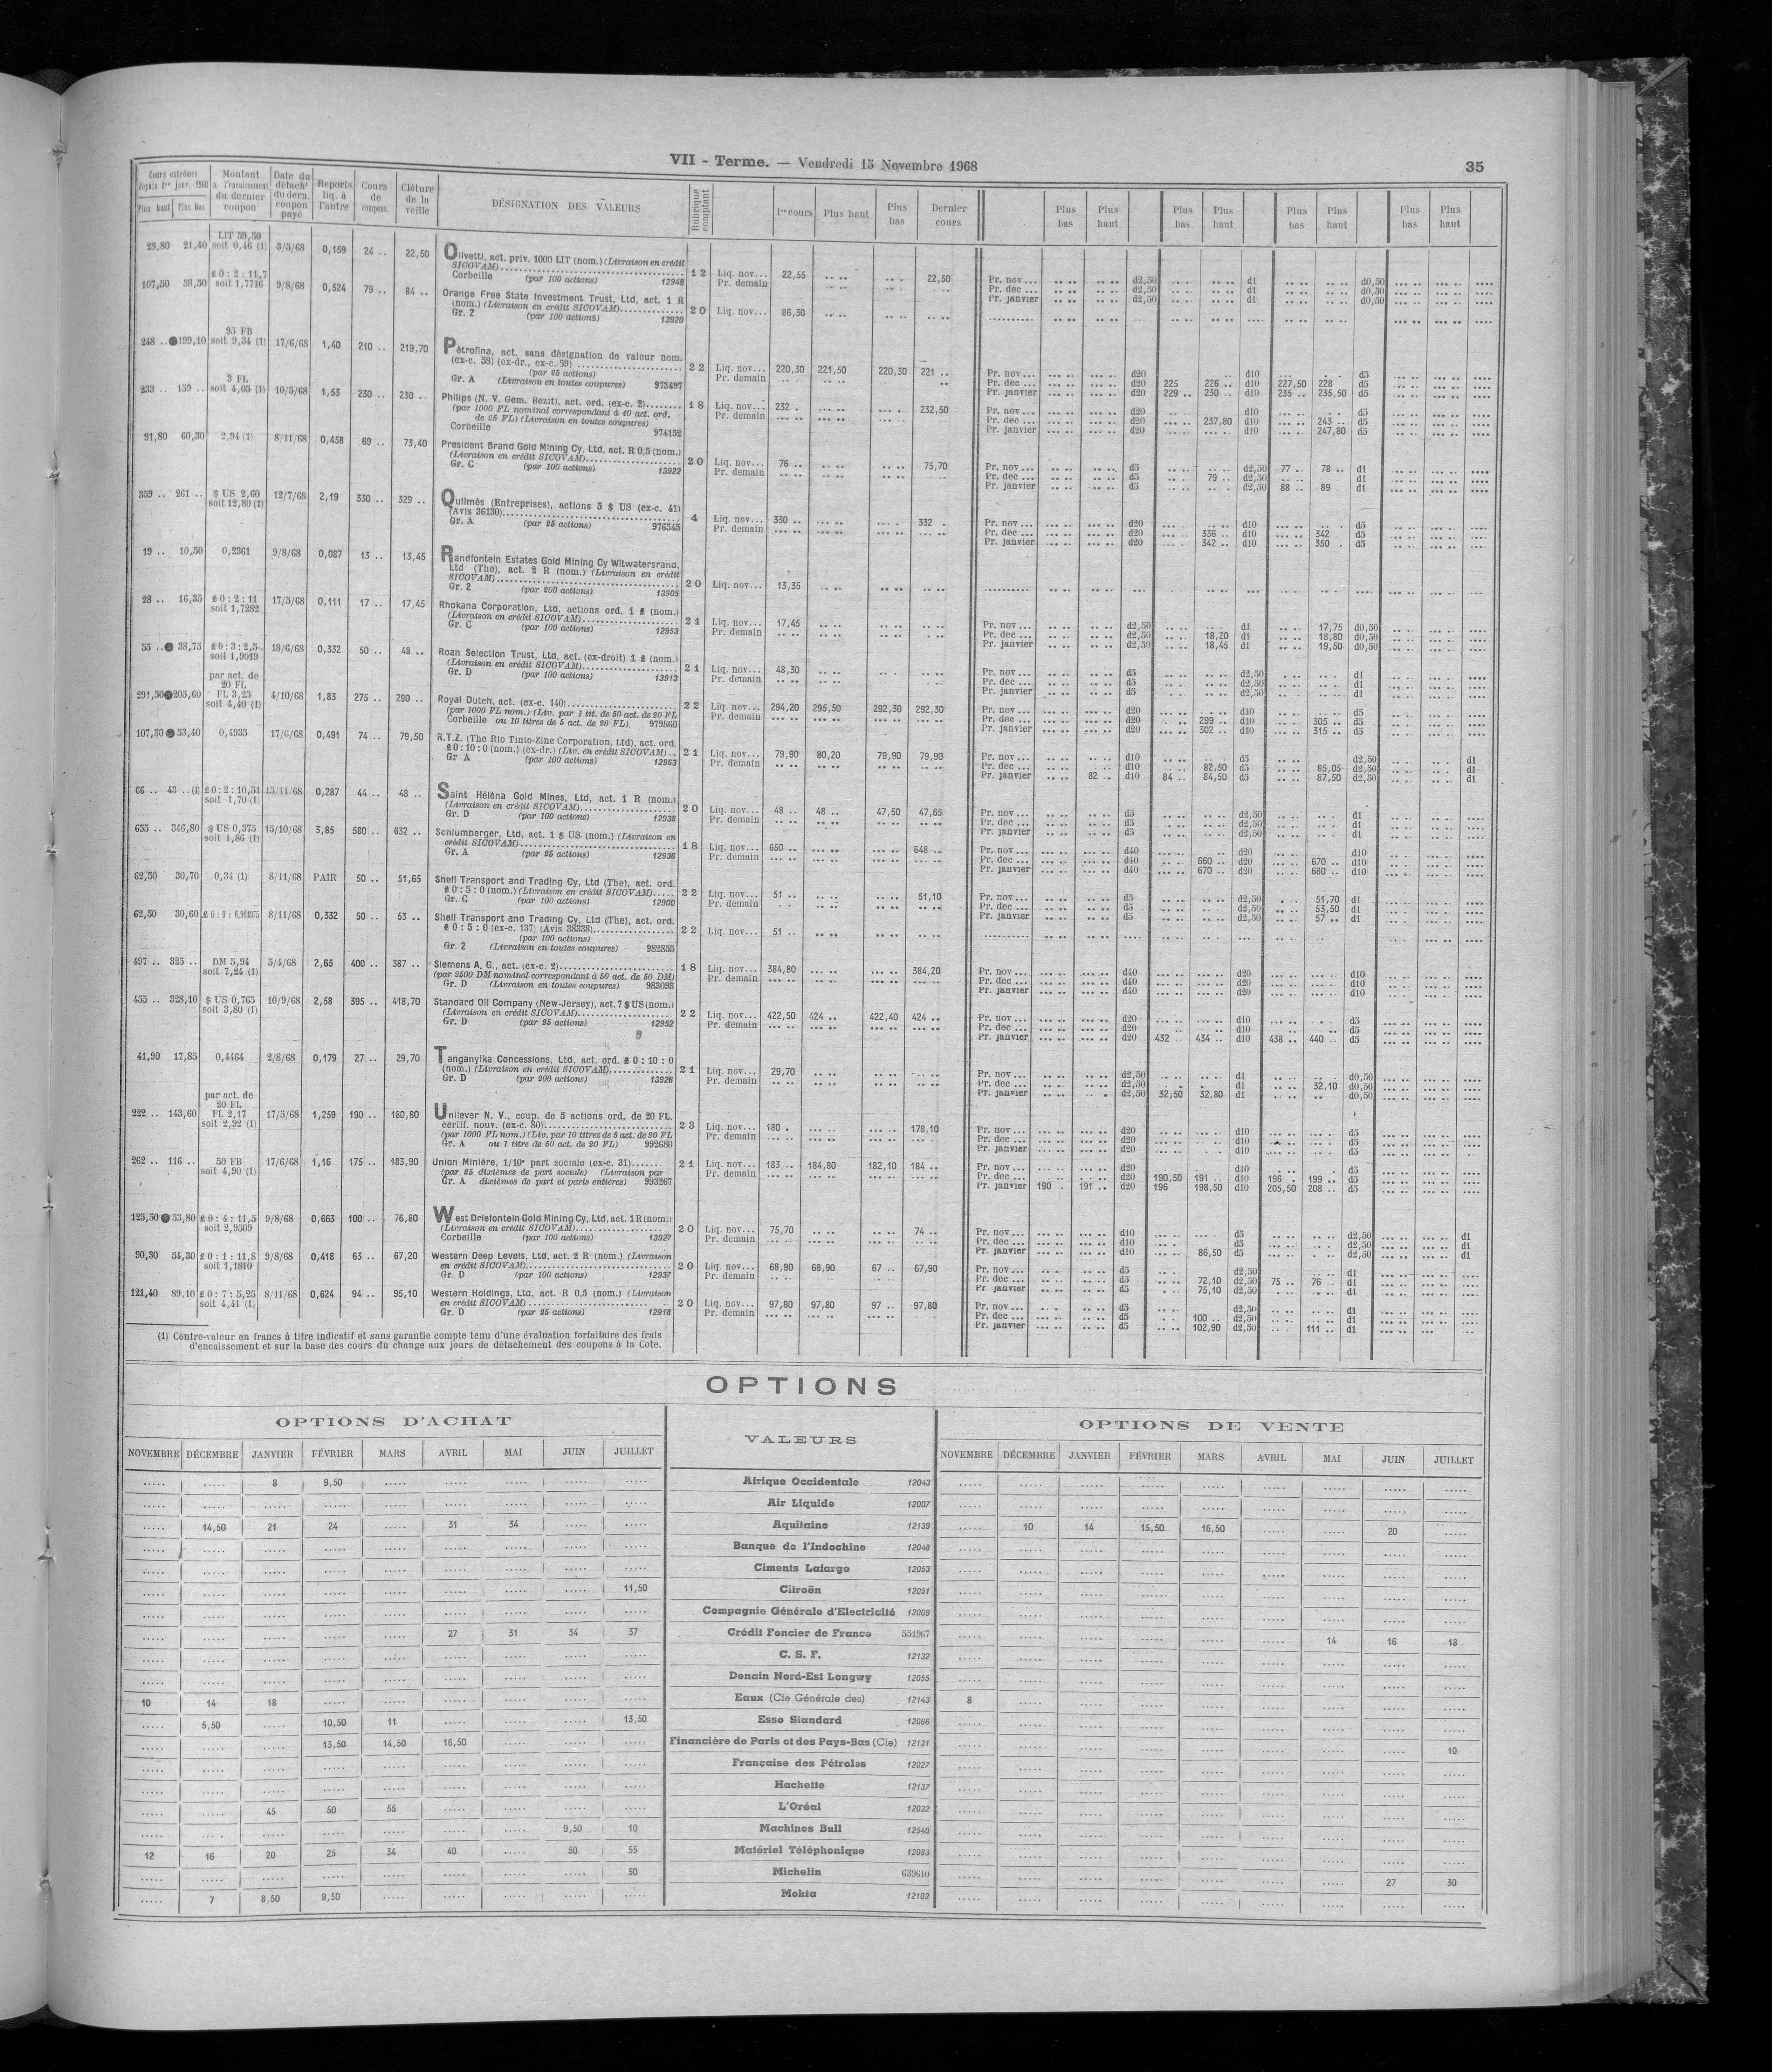 VII - Terme. — Vendredi 15 Novembre 1968
35
Cours extrêmes depuis 1er janv. 1968 Plus haut Plus bas | Montant à l'encaissement du dernier coupon | Date du détacht du dern. coupon payé | Reports liq. à l'autre | Cours de compens. | Clôture de la veille | DÉSIGNATION DES VALEURS | Rubrique comptant | 1er cours | Plus haut | Plus bas | Dernier cours | Plus bas | Plus haut | Plus bas | Plus haut | Plus bas | Plus haut | Plus bas | Plus haut
LIT 59,50
28,80 21,40 soit 0,46 (1) 3/5/68 0,159 24 .. 22,50 Olivetti, act. priv. 1000 LIT (nom.) (Livraison en crédit
SICOVAM)
Corbeille (par 100 actions) 12948 12 Liq. nov... 22,55 22,50 Pr. nov... d2,50 d1 d0,50
Pr. demain Pr. dec ... d2,50 d1 d0,50
Pr. janvier d2,50 d1 d0,50
£ 0 : 2 : 11,7
107,50 58,50 soit 1,7716 9/8/68 0,524 79 .. 84 .. Orange Free State Investment Trust, Ltd, act. 1 R
(nom.) (Livraison en crédit SICOVAM)
Gr. 2 (par 100 actions) 13920 20 Liq. nov... 86,30
95 FB
248 .. 199,10 soit 9,34 (1) 17/6/68 1,40 210 .. 219,70 Pétrofina, act. sans désignation de valeur nom.
(ex-c. 58) (ex-dr., ex-c. 59)
(par 25 actions)
Gr. A (Livraison en toutes coupures) 973497 22 Liq. nov... 220,30 221,50 220,30 221 .. Pr. nov ... d20 d10 d5
Pr. demain Pr. dec ... d20 225 226 .. d10 227,50 228 d5
Pr. janvier d20 229 .. 230 .. d10 235 .. 235,50 d5
3 FL
233 .. 159 .. soit 4,05 (1) 10/5/68 1,53 230 .. 230 .. Philips (N. V. Gem. Bezit), act. ord. (ex-c. 2)
(par 1000 FL nominal correspondant à 40 act. ord.
de 25 FL) (Livraison en toutes coupures)
Corbeille 974152 18 Liq. nov... 232 . 232,50 Pr. nov ... d20 d10 d5
Pr. demain Pr. dec ... d20 237,80 d10 243 .. d5
Pr. janvier d20 d10 247,80 d5
91,80 60,30 2,94 (1) 8/11/68 0,458 69 .. 73,40 President Brand Gold Mining Cy, Ltd, act. R 0,5 (nom.)
(Livraison en crédit SICOVAM)
Gr. C (par 100 actions) 13922 20 Liq. nov... 76 .. 75,70 Pr. nov ... d5 d2,50 77 .. 78 .. d1
Pr. demain Pr. dec ... d5 79 .. d2,50 d1
Pr. janvier d5 d2,50 88 .. 89 . d1
359 .. 261 .. $ US 2,60 12/7/68 2,19 330 .. 329 .. Quilmès (Entreprises), actions 5 $ US (ex-c. 41)
soit 12,80 (1) (Avis 36130)
Gr. A (par 25 actions) 976545 4 Liq. nov... 330 .. 332 . Pr. nov ... d20 d10 d5
Pr. demain Pr. dec ... d20 336 .. d10 342 d5
Pr. janvier d20 342 .. d10 350 . d5
19 .. 10,50 0,2361 9/8/68 0,087 13 .. 13,45 Randfontein Estates Gold Mining Cy Witwatersrand,
Ltd (The), act. 2 R (nom.) (Livraison en crédit
SICOVAM)
Gr. 2 (par 200 actions) 13905 20 Liq. nov... 13,35
28 .. 16,35 £ 0 : 2 : 11 17/5/68 0,111 17 .. 17,45 Rhokana Corporation, Ltd, actions ord. 1 £ (nom.)
soit 1,7282 (Livraison en crédit SICOVAM)
Gr. C (par 100 actions) 12953 21 Liq. nov... 17,45 Pr. nov ... d2,50 d1 17,75 d0,50
Pr. demain Pr. dec ... d2,50 18,20 d1 18,80 d0,50
Pr. janvier d2,50 18,45 d1 19,50 d0,50
55 .. 38,75 £ 0 : 3 : 2,5 18/6/68 0,332 50 .. 48 .. Roan Selection Trust, Ltd, act. (ex-droit) 1 £ (nom.)
soit 1,9019 (Livraison en crédit SICOVAM)
Gr. D (par 100 actions) 13913 21 Liq. nov... 48,30 Pr. nov ... d5 d2,50 d1
Pr. demain Pr. dec ... d5 d2,50 d1
Pr. janvier d5 d2,50 d1
par act. de
20 FL
291,50 205,60 FL 3,25 4/10/68 1,83 275 .. 290 .. Royal Dutch, act. (ex-c. 140)
soit 4,40 (1) (par 1000 FL nom.) (Liv. par 1 tit. de 50 act. de 20 FL
Corbeille ou 10 titres de 5 act. de 20 FL) 979860 22 Liq. nov... 294,20 295,50 292,30 292,30 Pr. nov ... d20 d10 d5
Pr. demain Pr. dec ... d20 299 .. d10 305 .. d5
Pr. janvier d20 302 .. d10 315 .. d5
107,30 53,40 0,4935 17/6/68 0,491 74 .. 79,50 R.T.Z. (The Rio Tinto-Zinc Corporation, Ltd), act. ord.
£ 0 : 10 : 0 (nom.) (ex-dr.) (Liv. en crédit SICOVAM)
Gr A (par 100 actions) 12963 21 Liq. nov... 79,90 80,20 79,90 79,90 Pr. nov ... d10 d5 d2,50 d1
Pr. demain Pr. dec ... d10 82,50 d5 85,05 d2,50 d1
Pr. janvier 82 .. d10 84 .. 84,50 d5 87,50 d2,50 d1
66 .. 43 ..(1) £ 0 : 2 : 10,51 15/11/68 0,287 44 .. 48 .. Saint Héléna Gold Mines, Ltd, act. 1 R (nom.)
soit 1,70 (1) (Livraison en crédit SICOVAM)
Gr. D (par 100 actions) 12938 20 Liq. nov... 48 .. 48 .. 47,50 47,65 Pr. nov ... d5 d2,50 d1
Pr. demain Pr. dec ... d5 d2,50 d1
Pr. janvier d5 d2,50 d1
655 .. 346,80 $ US 0,375 15/10/68 3,85 580 .. 632 .. Schlumberger, Ltd, act. 1 $ US (nom.) (Livraison en
soit 1,86 (1) crédit SICOVAM)
Gr. A (par 25 actions) 12936 18 Liq. nov... 650 .. 648 .. Pr. nov ... d40 d20 d10
Pr. demain Pr. dec ... d40 660 .. d20 670 .. d10
Pr. janvier d40 670 .. d20 680 .. d10
62,50 30,70 0,34 (1) 8/11/68 PAIR 50 .. 51,65 Shell Transport and Trading Cy, Ltd (The), act. ord.
£ 0 : 5 : 0 (nom.) (Livraison en crédit SICOVAM)
Gr. C (par 100 actions) 12900 22 Liq. nov... 51 .. 51,10 Pr. nov ... d5 d2,50 51,70 d1
Pr. demain Pr. dec ... d5 d2,50 53,50 d1
Pr. janvier d5 d2,50 57 .. d1
62,50 30,60 8/11/68 0,332 50 .. 53 .. Shell Transport and Trading Cy, Ltd (The), act. ord.
£ 0 : 5 : 0 (ex-c. 137) (Avis 38338)
(par 100 actions)
Gr. 2 (Livraison en toutes coupures) 982855 22 Liq. nov... 51 ..
497 .. 325 .. DM 5,94 5/4/68 2,65 400 .. 387 .. Siemens A, G., act. (ex-c. 2)
soit 7,24 (1) (par 2500 DM nominal correspondant à 50 act. de 50 DM)
Gr. D (Livraison en toutes coupures) 983093 18 Liq. nov... 384,80 384,20 Pr. nov ... d40 d20 d10
Pr. demain Pr. dec ... d40 d20 d10
Pr. janvier d40 d20 d10
455 .. 328,10 $ US 0,765 10/9/68 2,58 395 .. 418,70 Standard Oil Company (New-Jersey), act. 7 $ US (nom.)
soit 3,80 (1) (Livraison en crédit SICOVAM)
Gr. D (par 25 actions) 12952 22 Liq. nov... 422,50 424 .. 422,40 424 .. Pr. nov ... d20 d10 d5
Pr. demain Pr. dec ... d20 d10 d5
Pr. janvier d20 432 .. 434 .. d10 438 .. 440 .. d5
41,90 17,85 0,4464 2/8/68 0,179 27 .. 29,70 Tanganyika Concessions, Ltd, act. ord. £ 0 : 10 : 0
(nom.) (Livraison en crédit SICOVAM)
Gr. D (par 200 actions) 13926 21 Liq. nov... 29,70 Pr. nov ... d2,50 d1 d0,50
Pr. demain Pr. dec ... d2,50 d1 32,10 d0,50
Pr. janvier d2,50 32,50 32,80 d1 d0,50
par act. de
20 FL
222 .. 143,60 FL 2,17 17/5/68 1,259 190 .. 180,80 Unilever N. V., coup. de 5 actions ord. de 20 FL.
soit 2,92 (1) certif. nouv. (ex-c. 80)
(par 1000 FL nom.) (Liv. par 10 titres de 5 act. de 20 FL
Gr. A ou 1 titre de 50 act. de 20 FL) 992680 23 Liq. nov... 180 . 178,10 Pr. nov ... d20 d10 d5
Pr. demain Pr. dec ... d20 d10 d5
Pr. janvier d20 d10 d5
262 .. 116 .. 50 FB 17/6/68 1,16 175 .. 183,90 Union Minière, 1/10e part sociale (ex-c. 31)
soit 4,90 (1) (par 25 dixièmes de part sociale) (Livraison par
Gr. A dixièmes de part et parts entières) 993267 21 Liq. nov... 183 .. 184,80 182,10 184 .. Pr. nov ... d20 d10 d5
Pr. demain Pr. dec ... d20 190,50 191 .. d10 196 . 199 .. d5
Pr. janvier 190 . 191 .. d20 196 198,50 d10 205,50 208 .. d5
125,50 53,80 £ 0 : 4 : 11,5 9/8/68 0,663 100 .. 76,80 West Driefontein Gold Mining Cy, Ltd, act. 1 R (nom.)
soit 2,9509 (Livraison en crédit SICOVAM)
Corbeille (par 100 actions) 13927 20 Liq. nov... 75,70 74 .. Pr. nov ... d10 d5 d2,50 d1
Pr. demain Pr. dec ... d10 d5 d2,50 d1
Pr. janvier d10 86,50 d5 d2,50 d1
90,30 54,30 £ 0 : 1 : 11,8 9/8/68 0,418 63 .. 67,20 Western Deep Levels, Ltd, act. 2 R (nom.) (Livraison
soit 1,1810 en crédit SICOVAM)
Gr. D (par 100 actions) 12937 20 Liq. nov... 68,90 68,90 67 .. 67,90 Pr. nov ... d5 d2,50 d1
Pr. demain Pr. dec ... d5 72,10 d2,50 75 .. 76 .. d1
Pr. janvier d5 75,10 d2,50 d1
121,40 89,10 £ 0 : 7 : 5,25 8/11/68 0,624 94 .. 95,10 Western Holdings, Ltd, act. R 0,5 (nom.) (Livraison
soit 4,41 (1) en crédit SICOVAM)
Gr. D (par 25 actions) 12918 20 Liq. nov... 97,80 97,80 97 .. 97,80 Pr. nov ... d5 d2,50 d1
Pr. demain Pr. dec ... d5 100 .. d2,50 d1
Pr. janvier d5 102,90 d2,50 111 .. d1
(1) Contre-valeur en francs à titre indicatif et sans garantie compte tenu d'une évaluation forfaitaire des frais
d'encaissement et sur la base des cours du change aux jours de détachement des coupons à la Cote.
OPTIONS
OPTIONS D'ACHAT | VALEURS | OPTIONS DE VENTE
NOVEMBRE DÉCEMBRE JANVIER FÉVRIER MARS AVRIL MAI JUIN JUILLET | NOVEMBRE DÉCEMBRE JANVIER FÉVRIER MARS AVRIL MAI JUIN JUILLET
..... ..... 8 9,50 ..... ..... ..... ..... ..... Afrique Occidentale 12043 ..... ..... ..... ..... ..... ..... ..... ..... .....
..... ..... ..... ..... ..... ..... ..... ..... ..... Air Liquide 12007 ..... ..... ..... ..... ..... ..... ..... ..... .....
..... 14,50 21 24 ..... 31 34 ..... ..... Aquitaine 12139 ..... 10 14 15,50 16,50 ..... ..... 20 .....
..... ..... ..... ..... ..... ..... ..... ..... ..... Banque de l'Indochine 12048 ..... ..... ..... ..... ..... ..... ..... ..... .....
..... ..... ..... ..... ..... ..... ..... ..... ..... Ciments Lafarge 12053 ..... ..... ..... ..... ..... ..... ..... ..... .....
..... ..... ..... ..... ..... ..... ..... ..... 11,50 Citroën 12051 ..... ..... ..... ..... ..... ..... ..... ..... .....
..... ..... ..... ..... ..... ..... ..... ..... ..... Compagnie Générale d'Electricité 12009 ..... ..... ..... ..... ..... ..... ..... ..... .....
..... ..... ..... ..... ..... 27 31 34 37 Crédit Foncier de France 551967 ..... ..... ..... ..... ..... ..... 14 16 18
..... ..... ..... ..... ..... ..... ..... ..... ..... C. S. F. 12132 ..... ..... ..... ..... ..... ..... ..... ..... .....
..... ..... ..... ..... ..... ..... ..... ..... ..... Denain Nord-Est Longwy 12055 ..... ..... ..... ..... ..... ..... ..... ..... .....
10 14 18 ..... ..... ..... ..... ..... ..... Eaux (Cie Générale des) 12143 8 ..... ..... ..... ..... ..... ..... ..... .....
..... 5,50 ..... 10,50 11 ..... ..... ..... 13,50 Esso Standard 12066 ..... ..... ..... ..... ..... ..... ..... ..... .....
..... ..... ..... 13,50 14,50 16,50 ..... ..... ..... Financière de Paris et des Pays-Bas (Cie) 12131 ..... ..... ..... ..... ..... ..... ..... ..... 10
..... ..... ..... ..... ..... ..... ..... ..... ..... Française des Pétroles 12027 ..... ..... ..... ..... ..... ..... ..... ..... .....
..... ..... ..... ..... ..... ..... ..... ..... ..... Hachette 12137 ..... ..... ..... ..... ..... ..... ..... ..... .....
..... ..... 45 50 55 ..... ..... ..... ..... L'Oréal 12032 ..... ..... ..... ..... ..... ..... ..... ..... .....
..... ..... ..... ..... ..... ..... ..... 9,50 10 Machines Bull 12540 ..... ..... ..... ..... ..... ..... ..... ..... .....
12 16 20 25 34 40 ..... 50 55 Matériel Téléphonique 12083 ..... ..... ..... ..... ..... ..... ..... ..... .....
..... ..... ..... ..... ..... ..... ..... ..... 50 Michelin 639610 ..... ..... ..... ..... ..... ..... ..... 27 30
..... 7 8,50 9,50 ..... ..... ..... ..... ..... Mokta 12102 ..... ..... ..... ..... ..... ..... ..... ..... .....